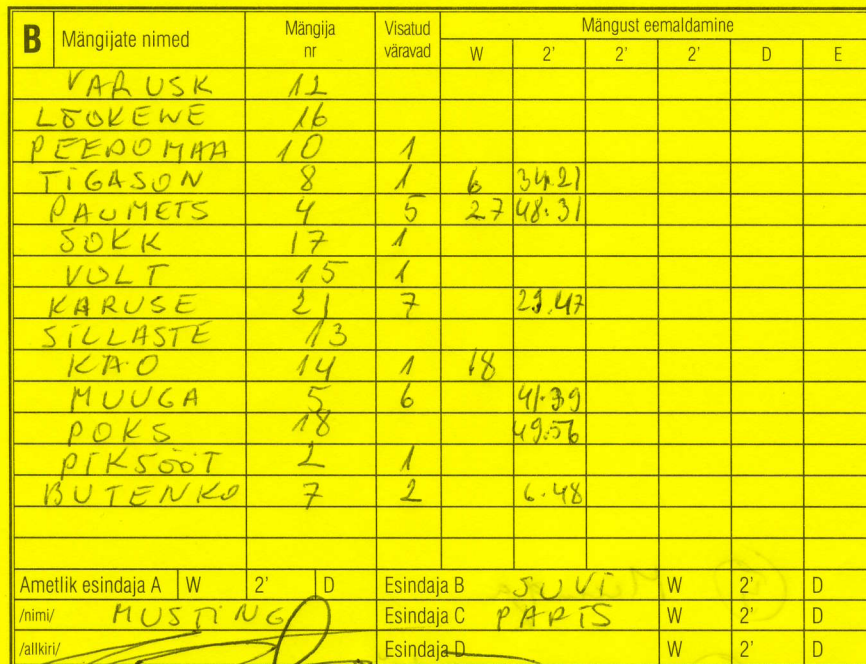 B Mängijate nimed Mängija nr Visatud väravad Mängust eemaldamine
W 2' 2' 2' D E
VARUSK 12
LÕOKEWE 16
PEEDOMAA 10 1
TIGASON 8 1 6 34.21
PAUMETS 4 5 27 48.31
SOKK 17 1
VOLT 15 1
KARUSE 21 7 29.47
SILLASTE 13
KAO 14 1 18
MUUGA 5 6 41.39
POKS 18 49.56
PIKSÖÖT 2 1
BUTENKO 7 2 6.48
Ametlik esindaja A W 2' D Esindaja B SUVI W 2' D
/nimi/ MUSTING Esindaja C PARTS W 2' D
/allkiri/ Esindaja D W 2' D